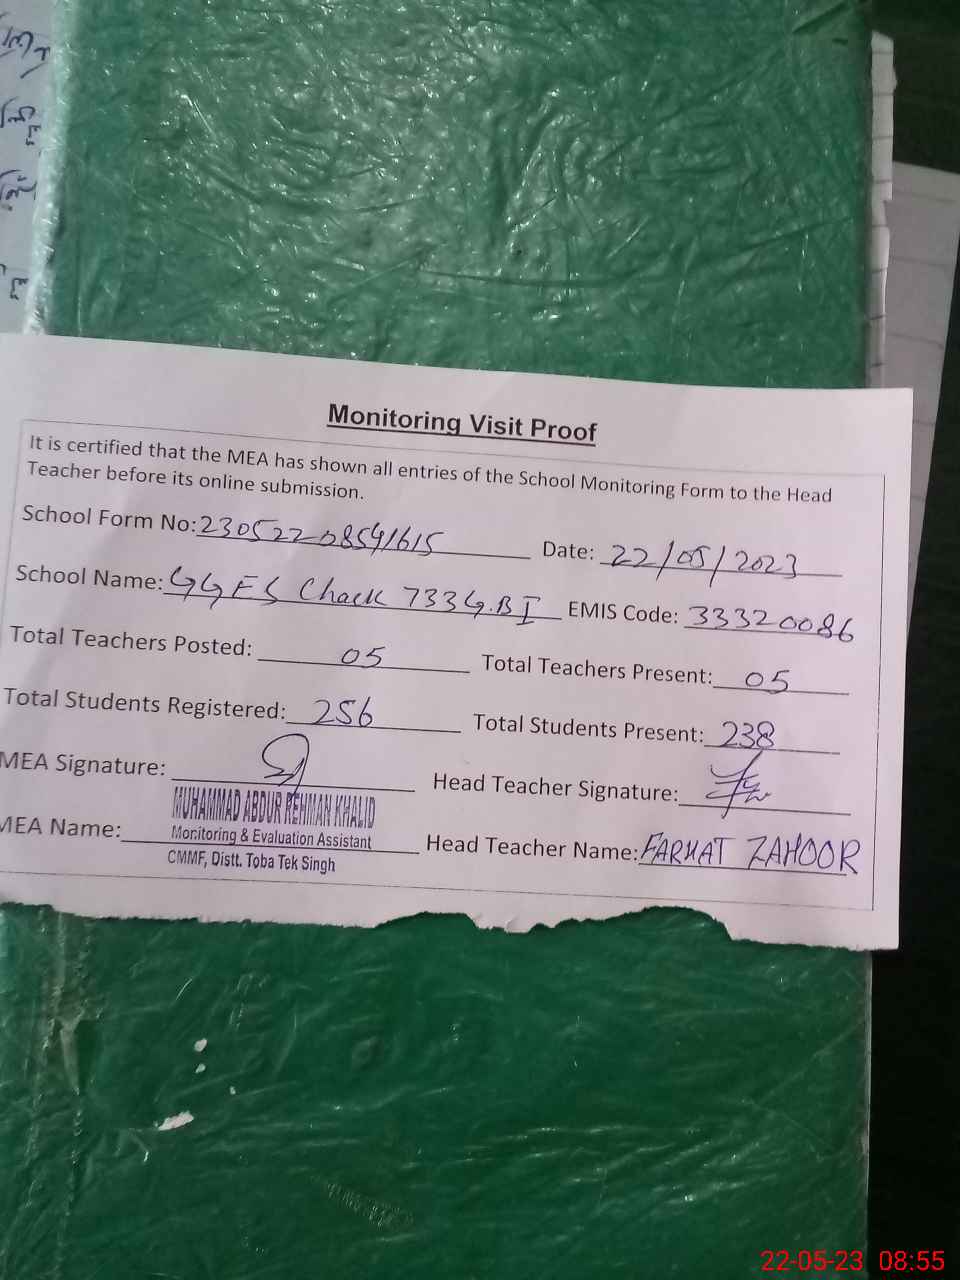 Monitoring Visit Proof
It is certified that the MEA has shown all entries of the School Monitoring Form to the Head
Teacher before its online submission.
School Form No: 230522-08541615 Date: 22/05/2023
School Name: GGES Chack 733G.BI EMIS Code: 33320086
Total Teachers Posted: 05 Total Teachers Present: 05
Total Students Registered: 256 Total Students Present: 238
MEA Signature: Head Teacher Signature:
MUHAMMAD ABDUR REHMAN KHALID
MEA Name: Monitoring & Evaluation Assistant Head Teacher Name: FARHAT ZAHOOR
CMMF, Distt. Toba Tek Singh
22-05-23 08:55